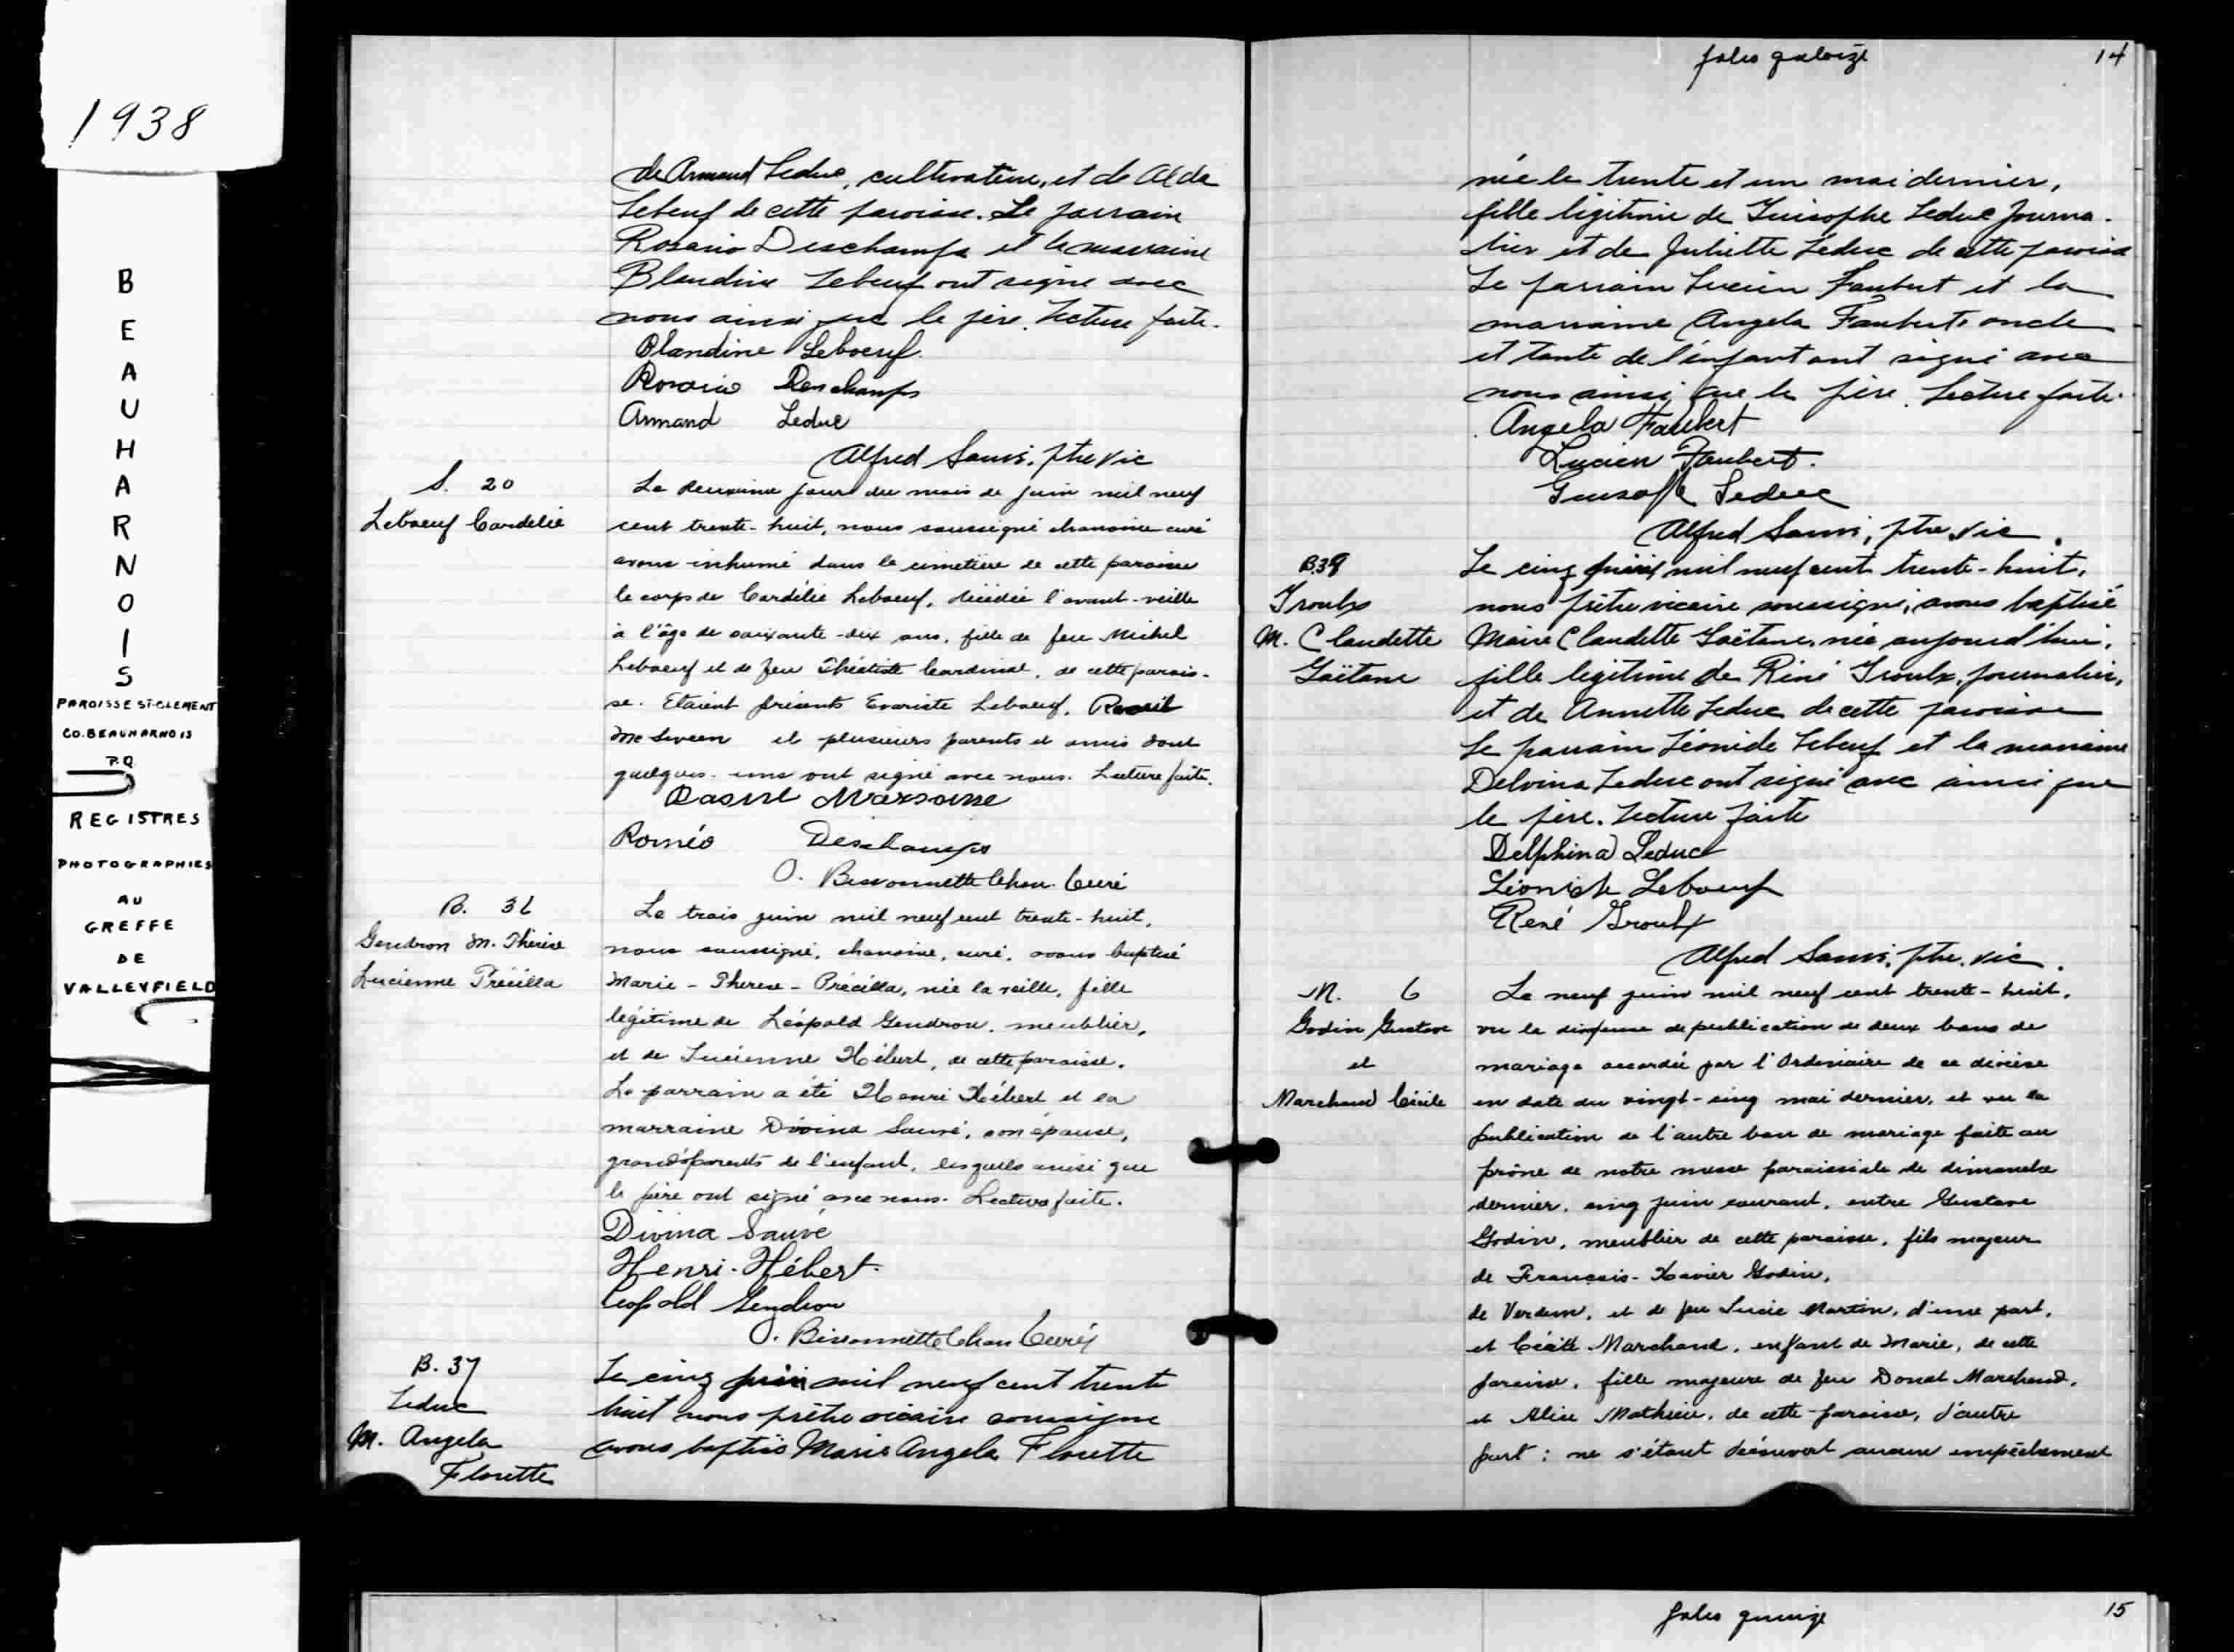 1938
B
E
A
U
H
A
R
N
O
I
S
PAROISSE ST-CLEMENT
CO. BEAUHARNOIS
P.Q
REGISTRES
PHOTOGRAPHIES
AU
GREFFE
DE
VALLEYFIELD
de Armand Leduc, cultivateur, et de Alda
Lebeuf de cette paroisse. Le parrain
Rosario Deschamps et la marraine
Blandine Lebeuf ont signé avec
nous ainsi que le père. Lecture faite.
Blandine Leboeuf.
Rosario Deschamps
Armand Leduc
Alfred Sauvé, ptre vic
S. 20
Leboeuf Cordélie
Le deuxième jour du mois de juin mil neuf
cent trente-huit, nous soussigné chanoine curé
avons inhumé dans le cimetière de cette paroisse
le corps de Cordélie Leboeuf, décédée l'avant-veille
à l'âge de soixante-dix ans, fille de feu Michel
Leboeuf et de feu Théotiste Cardinal, de cette parois-
se. Etaient présents Evariste Leboeuf,
Mc Sween et plusieurs parents et amis dont
quelques-uns ont signé avec nous. Lecture faite.
Roméo Deschamps
O. Bissonnette Chan. Curé
B. 36
Gendron M. Thérèse
Lucienne Précilla
Le trois juin mil neuf cent trente-huit,
nous soussigné, chanoine, curé, avons baptisé
Marie-Therese-Précilla, née la veille, fille
légitime de Léopold Gendron, meublier,
et de Lucienne Hébert, de cette paroisse.
Le parrain a été Henri Hébert et la
marraine Divina Sauvé, son épouse,
grands'parents de l'enfant, lesquels ainsi que
le père ont signé avec nous. Lecture faite.
Divina Sauvé
Henri-Hébert.
Leopold Gendron
O. Bissonnette Chan Curé
B. 37
Leduc
M. Angela
Florette
Le cinq juin mil neuf cent trente
huit nous prêtre vicaire soussigné
avons baptisé Marie Angela Florette
folio quatorze
14
née le trente et un mai dernier,
fille légitime de Leduc Journa-
lier et de Juliette Leduc de cette paroisse
Le parrain Lucien Faubert et la
marraine Angela Faubert oncle
et tante de l'enfant ont signé avec
nous ainsi que le père. Lecture faite.
Angela Faubert
Lucien Faubert.
Leduc
Alfred Sauvé, ptre vic.
B.38
Groulx
M. Claudette
Gaëtane
Le cinq juin mil neuf cent trente-huit,
nous prêtre vicaire soussigné, avons baptisé
Marie Claudette Gaëtane, née aujourd'hui,
fille légitime de René Groulx, journalier,
et de Annette Leduc de cette paroisse
Le parrain Léonide Lebeuf et la marraine
Delvina Leduc ont signé avec ainsi que
le père. Lecture faite
Delphina Leduc
Léonide Leboeuf
René Groulx
Alfred Sauvé, ptre. vic.
M. 6
Godin Gustave
et
Marchand Cécile
Le neuf juin mil neuf cent trente-huit,
vu la dispense de publication de deux bans de
mariage accordée par l'Ordinaire de ce diocèse
en date du vingt-cinq mai dernier, et vu la
publication de l'autre ban de mariage faite au
prône de notre messe paroissiale de dimanche
dernier, cinq juin courant, entre Gustave
Godin, meublier de cette paroisse, fils majeur
de François-Xavier Godin,
de Verdun, et de feu Lucie Martin, d'une part,
et Cécile Marchand, enfant de Marie, de cette
paroisse, fille majeure de feu Donat Marchand,
et Alice Mathieu, de cette paroisse, d'autre
part; ne s'étant découvert aucun empêchement
folio quinze
15